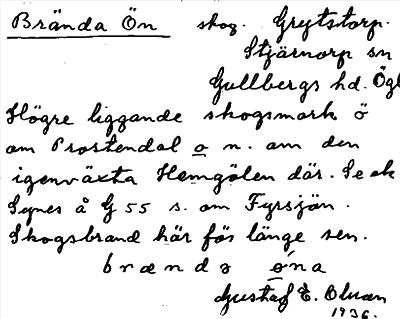 Brända Ön skog. Grytstorp.
Stjärnorp sn
Gullbergs hd. Ögl
Högre liggande skogsmark ö
om Prostendal o n. om den
igenväxta Hemgölen där. Se ek
Synes å G 55 s. om Fyrsjön.
Skogsbrand här för länge sen.
brændə øna
Gustaf E. Oluan
1936.